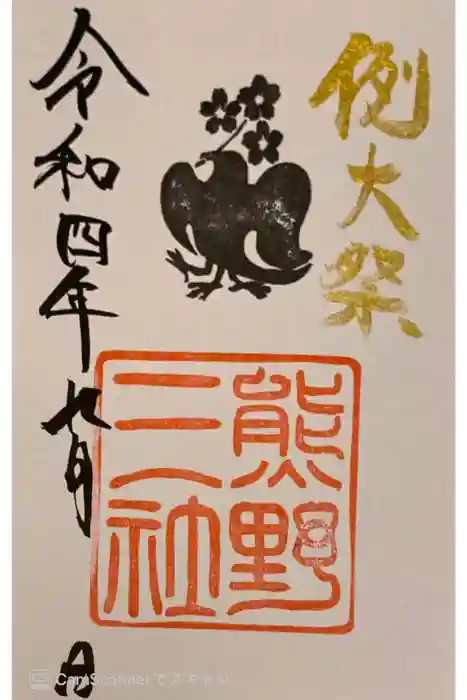 例大祭
熊野
三社
令和四年九月 日
CamScannerでスキャン